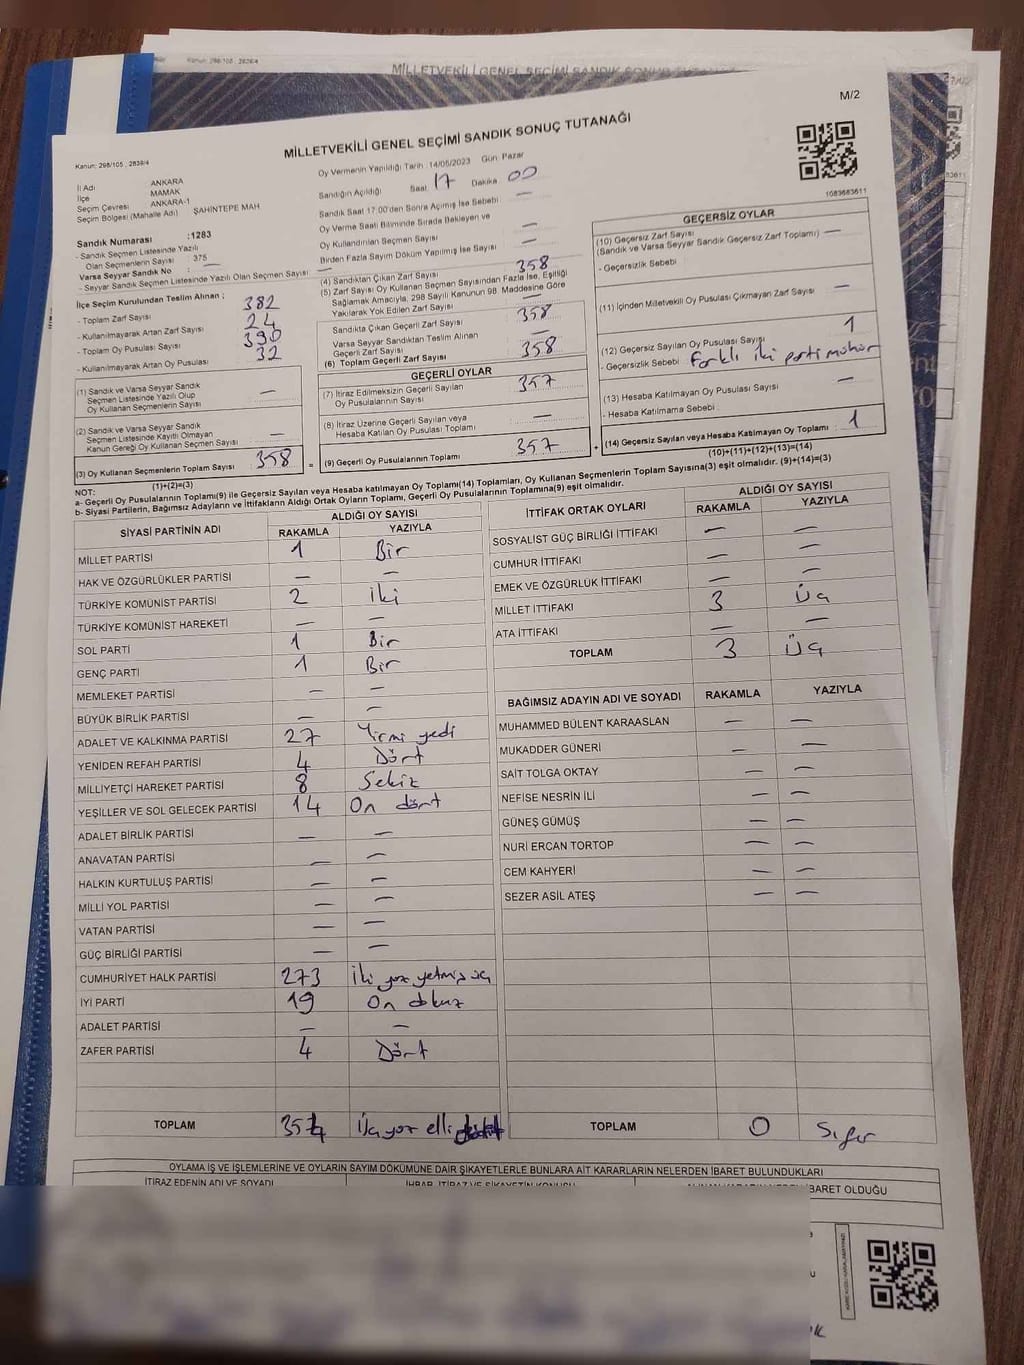 MİLLETVEKİLİ GENEL SEÇİMİ SANDIK SONUÇ TUTANAĞI
M/2
Kanun: 298/105 , 2839/4
İl Adı ANKARA
İlçe MAMAK
Seçim Çevresi ANKARA-1
Seçim Bölgesi (Mahalle Adı) ŞAHİNTEPE MAH
Sandık Numarası :1283
- Sandık Seçmen Listesinde Yazılı
Olan Seçmenlerin Sayısı 375
Varsa Seyyar Sandık No :
- Seyyar Sandık Seçmen Listesinde Yazılı Olan Seçmen Sayısı
İlçe Seçim Kurulundan Teslim Alınan :
- Toplam Zarf Sayısı 382
- Kullanılmayarak Artan Zarf Sayısı 24
- Toplam Oy Pusulası Sayısı 390
- Kullanılmayarak Artan Oy Pusulası 32
(1) Sandık ve Varsa Seyyar Sandık
Seçmen Listesinde Yazılı Olup
Oy Kullanan Seçmenlerin Sayısı —
(2) Sandık ve Varsa Seyyar Sandık
Seçmen Listesinde Kayıtlı Olmayan
Kanun Gereği Oy Kullanan Seçmen Sayısı —
(3) Oy Kullanan Seçmenlerin Toplam Sayısı 358
(1)+(2)=(3)
Oy Vermenin Yapıldığı Tarih :14/05/2023 Gün: Pazar
Sandığın Açıldığı Saat 17 Dakika 00
Sandık Saat 17:00'den Sonra Açılmış İse Sebebi —
Oy Verme Saati Bitiminde Sırada Bekleyen ve
Oy Kullandırılan Seçmen Sayısı —
Birden Fazla Sayım Döküm Yapılmış İse Sayısı —
(4) Sandıktan Çıkan Zarf Sayısı 358
(5) Zarf Sayısı Oy Kullanan Seçmen Sayısından Fazla İse, Eşitliği
Sağlamak Amacıyla, 298 Sayılı Kanunun 98. Maddesine Göre
Yakılarak Yok Edilen Zarf Sayısı
Sandıkta Çıkan Geçerli Zarf Sayısı 358
Varsa Seyyar Sandıktan Teslim Alınan
Geçerli Zarf Sayısı —
(6) Toplam Geçerli Zarf Sayısı 358
GEÇERLİ OYLAR
(7) İtiraz Edilmeksizin Geçerli Sayılan
Oy Pusulalarının Sayısı 357
(8) İtiraz Üzerine Geçerli Sayılan veya
Hesaba Katılan Oy Pusulası Toplamı —
(9) Geçerli Oy Pusulalarının Toplamı 357
1083683611
GEÇERSİZ OYLAR
(10) Geçersiz Zarf Sayısı —
(Sandık ve Varsa Seyyar Sandık Geçersiz Zarf Toplamı)
- Geçersizlik Sebebi :
(11) İçinden Milletvekili Oy Pusulası Çıkmayan Zarf Sayısı —
(12) Geçersiz Sayılan Oy Pusulası Sayısı 1
- Geçersizlik Sebebi : Farklı iki parti mühür
(13) Hesaba Katılmayan Oy Pusulası Sayısı —
- Hesaba Katılmama Sebebi :
(14) Geçersiz Sayılan veya Hesaba Katılmayan Oy Toplamı 1
(10)+(11)+(12)+(13)=(14)
NOT:
a- Geçerli Oy Pusulalarının Toplamı(9) ile Geçersiz Sayılan veya Hesaba katılmayan Oy Toplamı(14) Toplamları, Oy Kullanan Seçmenlerin Toplam Sayısına(3) eşit olmalıdır. (9)+(14)=(3)
b- Siyasi Partilerin, Bağımsız Adayların ve İttifakların Aldığı Ortak Oyların Toplamı, Geçerli Oy Pusulalarının Toplamına(9) eşit olmalıdır.
SİYASİ PARTİNİN ADI ALDIĞI OY SAYISI
RAKAMLA YAZIYLA
MİLLET PARTİSİ 1 Bir
HAK VE ÖZGÜRLÜKLER PARTİSİ — —
TÜRKİYE KOMÜNİST PARTİSİ 2 İki
TÜRKİYE KOMÜNİST HAREKETİ — —
SOL PARTİ 1 Bir
GENÇ PARTİ 1 Bir
MEMLEKET PARTİSİ — —
BÜYÜK BİRLİK PARTİSİ — —
ADALET VE KALKINMA PARTİSİ 27 Yirmi yedi
YENİDEN REFAH PARTİSİ 4 Dört
MİLLİYETÇİ HAREKET PARTİSİ 8 Sekiz
YEŞİLLER VE SOL GELECEK PARTİSİ 14 On dört
ADALET BİRLİK PARTİSİ — —
ANAVATAN PARTİSİ — —
HALKIN KURTULUŞ PARTİSİ — —
MİLLİ YOL PARTİSİ — —
VATAN PARTİSİ — —
GÜÇ BİRLİĞİ PARTİSİ — —
CUMHURİYET HALK PARTİSİ 273 İki yüz yetmiş üç
İYİ PARTİ 19 On dokuz
ADALET PARTİSİ — —
ZAFER PARTİSİ 4 Dört
TOPLAM 354 Üç yüz elli
İTTİFAK ORTAK OYLARI ALDIĞI OY SAYISI
RAKAMLA YAZIYLA
SOSYALİST GÜÇ BİRLİĞİ İTTİFAKI — —
CUMHUR İTTİFAKI — —
EMEK VE ÖZGÜRLÜK İTTİFAKI — —
MİLLET İTTİFAKI 3 Üç
ATA İTTİFAKI — —
TOPLAM 3 Üç
BAĞIMSIZ ADAYIN ADI VE SOYADI RAKAMLA YAZIYLA
MUHAMMED BÜLENT KARAASLAN — —
MUKADDER GÜNERİ — —
SAİT TOLGA OKTAY — —
NEFİSE NESRİN İLİ — —
GÜNEŞ GÜMÜŞ — —
NURİ ERCAN TORTOP — —
CEM KAHYERİ — —
SEZER ASİL ATEŞ — —
TOPLAM 0 Sıfır
OYLAMA İŞ VE İŞLEMLERİNE VE OYLARIN SAYIM DÖKÜMÜNE DAİR ŞİKAYETLERLE BUNLARA AİT KARARLARIN NELERDEN İBARET BULUNDUKLARI
İTİRAZ EDENİN ADI VE SOYADI İHBAR, İTİRAZ VE ŞİKAYETİN KONUSU İBARET OLDUĞU